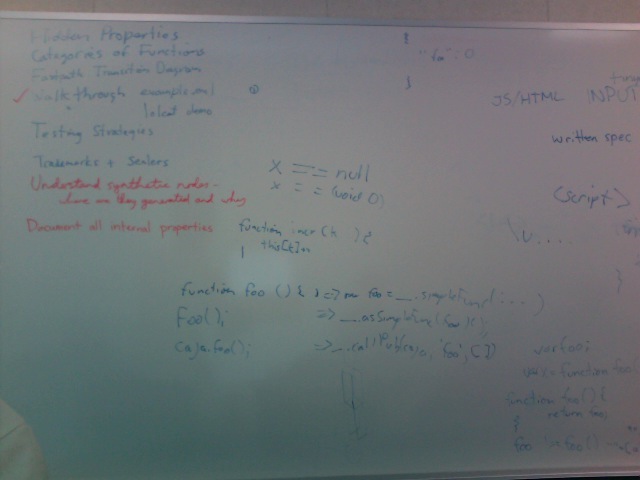 Hidden Properties
Categories of Functions
Fastpath Transition Diagram
Walkthrough example.wml
local demo
Testing Strategies
Trademarks + Sealers
Understand synthetic nodes -
where are they generated and why
Document all internal properties
{
"foo": 0
}
x === null
x === (void 0)
function incr(k) {
this[k]++
}
function foo() { } => foo = ___.simpleFunc(...)
Foo();
=> ___.asSimpleFunc(foo)();
caja.foo();
=> ___.callPub(caja, 'foo', [])
JS/HTML INPUT
written spec
<script>
\u....
}
var foo;
var x = function foo(
function foo() {
return foo;
}
foo foo()